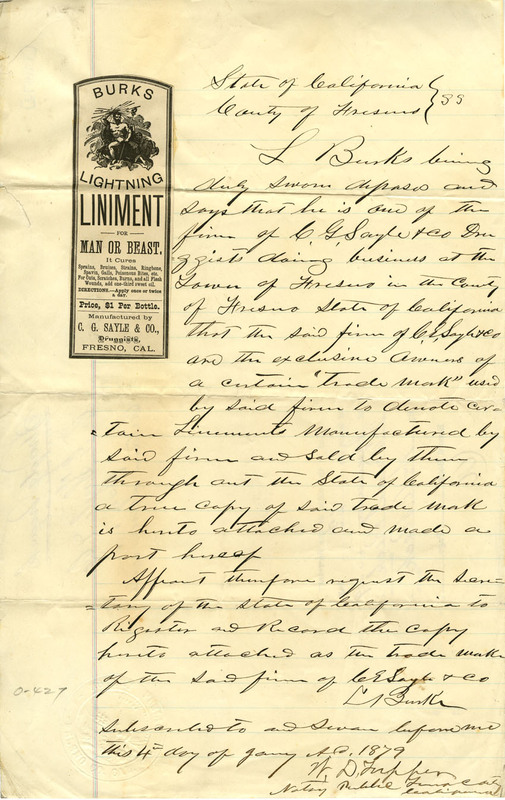 BURKS
LIGHTNING
LINIMENT
FOR
MAN OR BEAST.
It Cures
Sprains, Bruises, Strains, Ringbone,
Spavin, Galls, Poisonous Bites, etc.
For Cuts, Scratches, Burns, and all Flesh
Wounds, add one-third sweet oil.
DIRECTIONS.—Apply once or twice
a day.
Price, $1 Per Bottle.
Manufactured by
C. G. SAYLE & CO.,
Druggists,
FRESNO, CAL.
State of California
County of Fresno } SS
L Burks being
duly sworn deposes and
says that he is one of the
firm of C. G. Sayle & Co Dru
ggists doing business at the
Town of Fresno in the County
of Fresno State of California
that the said firm of C. G Sayle & Co
are the exclusive owners of
a certain "trade mark" used
by said firm to denote cer
=tain Linements Manufactured by
said firm and sold by them
through out the State of California
a true copy of said trade mark
is hereto attached and made a
part hereof
Affiant therefore request the Secre-
=tary of the State of California to
Register and Record the copy
hereto attached as the trade mark
of the said firm of C G Sayle & Co
L Burks
Subscribed to and Sworn before me
this 4 day of Jany A.D. 1879
W. D. Tupper
Notary Public Fresno Cal
California
0-427